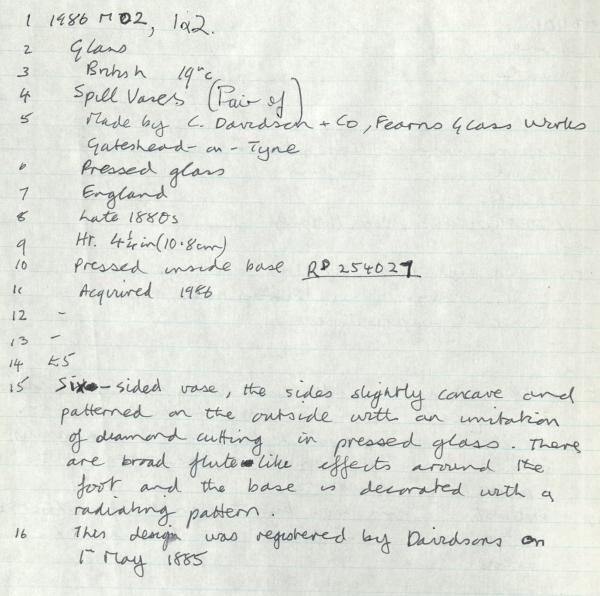 1 1986 M02, 1&2.
2 Glass
3 British 19th c
4 Spill Vases (Pair of)
5 Made by C. Davidson + Co, Fearns Glass Works
Gateshead-on-Tyne
6 Pressed glass
7 England
8 Late 1880s
9 Ht. 4¼in (10.8cm)
10 Pressed inside base RD 254027
11 Acquired 1986
12 -
13 -
14 £5
15 Six-sided vase, the sides slightly concave and
patterned on the outside with an imitation
of diamond cutting in pressed glass. There
are broad flute-like effects around the
foot and the base is decorated with a
radiating pattern.
16 This design was registered by Davidsons on
May 1885